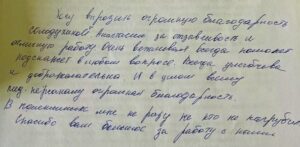 Хочу выразить огромную благодарность
Солодухиной Анастасии за отзывчивость и
отличную работу. Очень вежливая всегда поможет
подскажет в любом вопросе. Всегда улыбчива
и доброжелательна. И в целом всему
мед. персоналу огромная благодарность.
В поликлинике мне не разу не кто не нагрубил
Спасибо вам большое за работу с нами